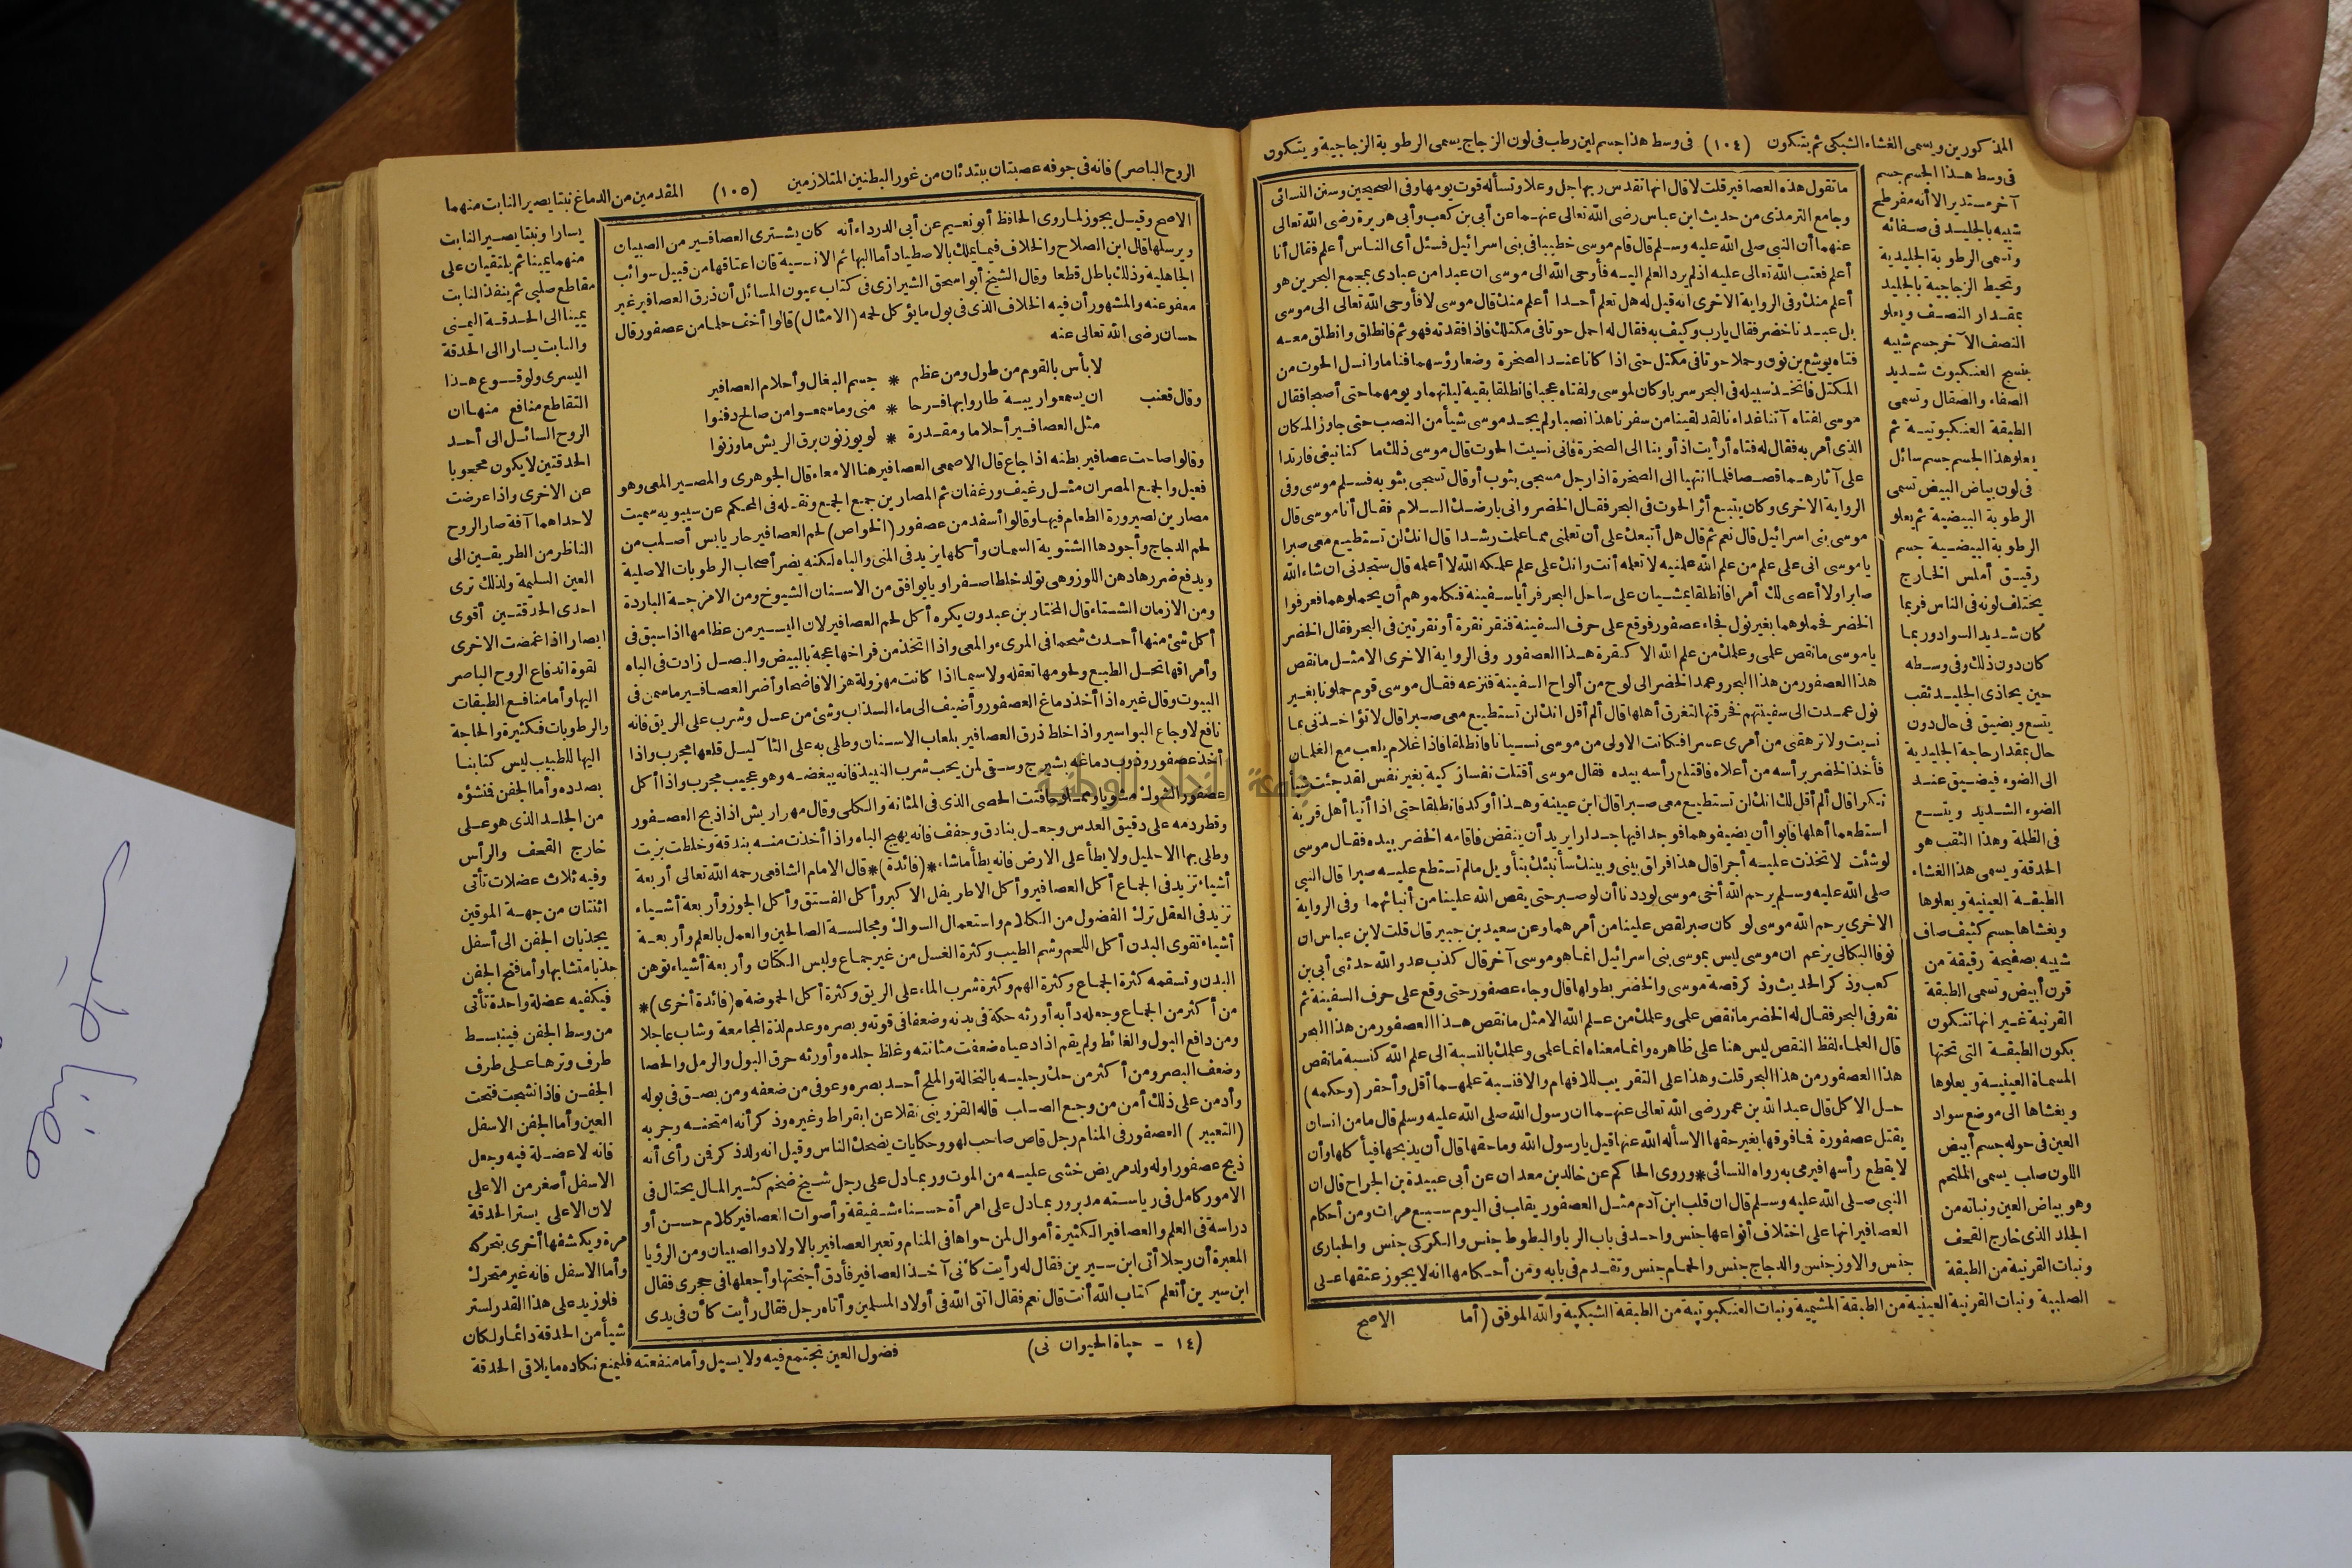 المذكورين ويسمى الغشاء الشبكى ثم يتكون (١٠٤) فى وسط هذا جسم لين رطب فى لون الزجاج يسمى الرطوبة الزجاجية ويتكون
فى وسط هذا الجسم جسم
آخر مستدير الا أنه مفرطح
شبيه بالجليد فى صفائه
وتسمى الرطوبة الجليدية
وتحيط الزجاجية بالجليد
بمقدار النصف ويعلو
النصف الآخر جسم شبيه
بنسج العنكبوت شديد
الصفاء والصقال وتسمى
الطبقة العنكبوتية ثم
يعلو هذا الجسم جسم سائل
فى لون بياض البيض تسمى
الرطوبة البيضية ثم يعلو
الرطوبة البيضية جسم
رقيق أملس الخارج
يختلف لونه فى الناس فربما
كان شديد السواد وربما
كان دون ذلك وفى وسطه
حين يحاذى الجليد ثقب
يتسع ويضيق فى حال دون
حال بمقدار حاجة الجليدية
الى الضوء فيضيق عند
الضوء الشديد ويتسع
فى الظلمة وهذا الثقب هو
الحدقة ويسمى هذا الغشاء
الطبقة العينية ويعلوها
ويغشاها جسم كثيف صاف
شبيه بصفيحة رقيقة من
قرن أبيض وتسمى الطبقة
القرنية غير انها تتكون
بكون الطبقة التى تحتها
المسماة العينية ويعلوها
ويغشاها الى موضع سواد
العين فى حوله جسم أبيض
اللون صلب يسمى الملتحم
وهو بياض العين ونباته من
الجلد الذى خارج القحف
ونبات القرنية من الطبقة
الصلبية ونبات القرنية العينية من الطبقة المشيمية ونبات العنكبوتية من الطبقة الشبكية والله الموفق (أما
ما تقول هذه العصافير قلت لا قال انها تقدس ربها جل وعلا وتسأله قوت يومها وفى الصحيحين وسنن النسائى
وجامع الترمذى من حديث ابن عباس رضى الله تعالى عنهما عن أبى بن كعب وأبى هريرة رضى الله تعالى
عنهما أن النبى صلى الله عليه وسلم قال قام موسى خطيبا فى بنى اسرائيل فسئل أى الناس أعلم فقال أنا
أعلم فعتب الله تعالى عليه اذ لم يرد العلم اليه فأوحى الله الى موسى ان عبدا من عبادى بمجمع البحرين هو
أعلم منك وفى الرواية الاخرى انه قيل له هل تعلم أحدا أعلم منك قال موسى لا فأوحى الله تعالى الى موسى
بل عبدنا خضر فقال يارب وكيف به فقال له احمل حوتا فى مكتلك فاذا فقدته فهو ثم فانطلق وانطلق معه
فتاه يوشع بن نون وحملا حوتا فى مكتل حتى اذا كانا عند الصخرة وضعا رؤسهما فناما وانسل الحوت من
المكتل فاتخذ سبيله فى البحر سربا وكان لموسى ولفتاه عجبا فانطلقا بقية ليلتهما ويومهما حتى أصبحا فقال
موسى لفتاه آتنا غداءنا لقد لقينا من سفرنا هذا نصبا ولم يجد موسى شيأ من النصب حتى جاوز المكان
الذى أمر به فقال له فتاه أرأيت اذ أوينا الى الصخرة فانى نسيت الحوت قال موسى ذلك ما كنا نبغى فارتدا
على آثارهما قصصا فلما انتهيا الى الصخرة اذا رجل مسجى بثوب أو قال تسجى بثوبه فسلم موسى وفى
الرواية الاخرى وكان يتبع أثر الحوت فى البحر فقال الخضر وانى بارضك السلام فقال أنا موسى قال
موسى بنى اسرائيل قال نعم ثم قال هل أتبعك على أن تعلمنى مما علمت رشدا قال انك لن تستطيع معى صبرا
يا موسى انى على علم من علم الله علمنيه لا تعلمه أنت وانك على علم علمكه الله لا أعلمه قال ستجدنى ان شاء الله
صابرا ولا أعصى لك أمرا فانطلقا يمشيان على ساحل البحر فرأيا سفينة فكلموهم أن يحملوهما فعرفوا
الخضر فحملوهما بغير نول فجاء عصفور فوقع على حرف السفينة فنقر نقرة أو نقرتين فى البحر فقال الخضر
يا موسى ما نقص علمى وعلمك من علم الله الا كنقرة هذا العصفور وفى الرواية الاخرى الا مثل ما نقص
هذا العصفور من هذا البحر وعمد الخضر الى لوح من ألواح السفينة فنزعه فقال موسى قوم حملونا بغير
نول عمدت الى سفينتهم فخرقتها لتغرق أهلها قال ألم أقل انك لن تستطيع معى صبرا قال لا تؤاخذنى بما
نسيت ولا ترهقنى من أمرى عسرا فكانت الاولى من موسى نسيانا فانطلقا فاذا غلام يلعب مع الغلمان
فأخذ الخضر برأسه من أعلاه فاقتلع رأسه بيده فقال موسى أقتلت نفسا زكية بغير نفس لقد جئت شيأ
نكرا قال ألم أقل لك انك لن تستطيع معى صبرا قال ابن عيينة وهذا أوكد فانطلقا حتى اذا أتيا أهل قرية
استطعما أهلها فابوا أن يضيفوهما فوجدا فيها جدارا يريد أن ينقض فاقامه الخضر بيده فقال موسى
لو شئت لاتخذت عليه أجرا قال هذا فراق بينى وبينك سأنبئك بتأويل ما لم تستطع عليه صبرا قال النبى
صلى الله عليه وسلم يرحم الله أخى موسى لوددنا أن لو صبر حتى يقص الله علينا من أنبائهما وفى الرواية
الاخرى يرحم الله موسى لو كان صبر لقص علينا من أمرهما وعن سعيد بن جبير قال قلت لابن عباس ان
نوفا البكالى يزعم ان موسى ليس بموسى بنى اسرائيل انما هو موسى آخر قال كذب عدو الله حدثنى أبى بن
كعب وذكر الحديث وذكر قصة موسى والخضر بطولها قال وجاء عصفور حتى وقع على حرف السفينة ثم
نقر فى البحر فقال له الخضر ما نقص علمى وعلمك من علم الله الا مثل ما نقص هذا العصفور من هذا البحر
قال العلماء لفظ النقص ليس هنا على ظاهره وانما معناه انما علمى وعلمك بالنسبة الى علم الله كنسبة ما نقص
هذا العصفور من هذا البحر قلت وهذا على التقريب للافهام والا فنسبة علمهما أقل وأحقر (وحكمه)
حل الاكل قال عبد الله بن عمر رضى الله تعالى عنهما ان رسول الله صلى الله عليه وسلم قال ما من انسان
يقتل عصفورة فما فوقها بغير حقها الا سأله الله عنها قيل يا رسول الله وما حقها قال أن يذبحها فيأكلها وأن
لا يقطع رأسها فيرمى به رواه النسائى * وروى الحاكم عن خالد بن معدان عن أبى عبيدة بن الجراح قال ان
النبى صلى الله عليه وسلم قال ان قلب ابن آدم مثل العصفور يقلب فى اليوم سبع مرات ومن أحكام
العصافير انها على اختلاف أنواعها جنس واحد فى باب الربا والبطوط جنس والكركى جنس والحبارى
جنس والاوز جنس والدجاج جنس والحمام جنس وتقدم فى بابه ومن أحكامها انه لا يجوز عتقها على
الاصح
الروح الباصر) فانه فى جوفه عصبتان يبتدئان من غور البطنين المتلازمين (١٠٥) المقدمين من الدماغ نبتا يصير النابت منهما
الاصح وقيل يجوز لما روى الحافظ أبو نعيم عن أبى الدرداء أنه كان يشترى العصافير من الصبيان
ويرسلها قال ابن الصلاح والخلاف فيما يملك بالاصطياد أما البهائم الانسية فان اعتاقها من قبيل سوائب
الجاهلية وذلك باطل قطعا وقال الشيخ أبو اسحق الشيرازى فى كتاب عيون المسائل أن ذرق العصافير غير
معفو عنه والمشهور أن فيه الخلاف الذى فى بول ما يؤكل لحمه (الامثال) قالوا أخف حلما من عصفور قال
حسان رضى الله تعالى عنه
لا بأس بالقوم من طول ومن عظم * جسم البغال وأحلام العصافير
وقال قعنب ان يسمعوا ريبة طاروا بها فرحا * منى وما سمعوا من صالح دفنوا
مثل العصافير أحلاما ومقدرة * لو يوزنون برق الريش ما وزنوا
وقالوا صاحت عصافير بطنه اذا جاع قال الاصمعى العصافير هنا الامعاء قال الجوهرى والمصير المعى وهو
فعيل والجمع المصران مثل رغيف ورغفان ثم المصارين جمع الجمع ونقله فى المحكم عن سيبويه سميت
مصارين لصيرورة الطعام فيها وقالوا أسفد من عصفور (الخواص) لحم العصافير حار يابس أصلب من
لحم الدجاج وأجودها الشتوية السمان وأكلها يزيد فى المنى والباه لكنه يضر أصحاب الرطوبات الاصلية
ويدفع ضررها دهن اللوز وهى تولد خلطا صفراويا يوافق من الاسنان الشيوخ ومن الامزجة الباردة
ومن الازمان الشتاء قال المختار بن عبدون يكره أكل لحم العصافير لان اليسير من عظامها اذا سبق فى
أكل شئ منها أحدث شحما فى المرىء والمعى واذا اتخذ من فراخها عجة بالبيض والبصل زادت فى الباه
وأمراقها تحل الطبع ولحومها تعقله ولا سيما اذا كانت مهزولة هزالا فاضحا وأضر العصافير ما سمن فى
البيوت وقال غيره اذا أخذ دماغ العصفور وأضيف الى ماء السذاب وشئ من عسل وشرب على الريق فانه
نافع لاوجاع البواسير واذا خلط ذرق العصافير بلعاب الاسنان وطلى به على الثآ ليل قلعها مجرب واذا
أخذ عصفور وذوب دماغه بشيرج وسقى لمن يحب شرب النبيذ فانه يبغضه وهو عجيب مجرب واذا أكل
عصفور الشوك مشويا ومملوحا فتت الحصى الذى فى المثانة والكلى وقال مهراريش اذا ذبح العصفور
وقطر دمه على دقيق العدس وجعل بنادق وجفف فانه يهيج الباه واذا أخذت منه بندقة وخلطت بزيت
وطلى بها الاحليل ولا يطأ على الارض فانه يطأ ما شاء *(فائدة)* قال الامام الشافعى رحمه الله تعالى أربعة
أشياء تزيد فى الجماع أكل العصافير وأكل الاطريفل الاكبر وأكل الفستق وأكل الجوز وأربعة أشياء
تزيد فى العقل ترك الفضول من الكلام واستعمال السواك ومجالسة الصالحين والعمل بالعلم وأربعة
أشياء تقوى البدن أكل اللحم وشم الطيب وكثرة الغسل من غير جماع ولبس الكتان وأربعة أشياء توهن
البدن وتسقمه كثرة الجماع وكثرة الهم وكثرة شرب الماء على الريق وكثرة أكل الحموضة *(فائدة أخرى)*
من أكثر من الجماع وجعله دأبه أورثه حكة فى بدنه وضعفا فى قوته وبصره وعدم لذة المجامعة وشاب عاجلا
ومن دافع البول والغائط ولم يقم اذا دعياه ضعفت مثانته وغلظ جلده وأورثه حرق البول والرمل والحصا
وضعف البصر ومن أكثر من حك رجليه بالنخالة والملح أحد بصره وعوفى من ضعفه ومن بصق فى بوله
وأدمن على ذلك أمن من وجع الصلب قاله القزوينى نقلا عن ابقراط وغيره وذكر أنه امتحنه وجربه
(التعبير) العصفور فى المنام رجل قاص صاحب لهو وحكايات يضحك الناس وقيل انه ولد ذكر فمن رأى أنه
ذبح عصفورا وله ولد مريض خشى عليه من الموت وربما دل على رجل شيخ ضخم كثير المال يحتال فى
الامور كامل فى رياسته مدبر وربما دل على امرأة حسناء شفيقة وأصوات العصافير كلام حسن أو
دراسة فى العلم والعصافير الكثيرة أموال لمن حواها فى المنام وتعبر العصافير بالاولاد والصبيان ومن الرؤيا
المعبرة أن رجلا أتى ابن سيرين فقال له رأيت كانى آخذ العصافير فأدق أجنحتها وأجعلها فى حجرى فقال
ابن سيرين أتعلم كتاب الله أنت قال نعم فقال اتق الله فى أولاد المسلمين وأتاه رجل فقال رأيت كأن فى يدى
(١٤ - حياة الحيوان نى)
يسارا ونبتا بصير النابت
منهما يمينا ثم يلتقيان على
مقاطع صلبى ثم ينفذ النابت
يمينا الى الحدقة اليمنى
والنابت يسارا الى الحدقة
اليسرى ولوقوع هذا
التقاطع منافع منها ان
الروح السائل الى أحد
الحدقتين لا يكون محجوبا
عن الاخرى واذا عرضت
لاحداهما آفة صار الروح
الناظر من الطريقين الى
العين السليمة ولذلك ترى
احدى الحدقتين أقوى
ابصارا اذا غمضت الاخرى
لقوة اندفاع الروح الباصر
اليها وأما منافع الطبقات
والرطوبات فكثيرة والحاجة
اليها للطبيب ليس كتابنا
بصدده وأما الجفن فنشؤه
من الجلد الذى هو على
خارج القحف والرأس
وفيه ثلاث عضلات تأتى
اثنتان من جهة الموقين
يجذبان الجفن الى أسفل
جذبا متشابها وأما فتح الجفن
فيكفيه عضلة واحدة تأتى
من وسط الجفن فينبسط
طرف وترها على طرف
الجفن فاذا تشنجت فتحت
العين وأما الجفن الاسفل
فانه لا عضلة فيه وجعل
الاسفل أصغر من الاعلى
لان الاعلى يستر الحدقة
مرة ويكشفها أخرى بتحركه
وأما الاسفل فانه غير متحرك
فلو زيد على هذا القدر لستر
شيأ من الحدقة دائما ولكان
فضول العين تجتمع فيه ولا يسيل وأما منفعته فليمنع نكاده ما يلاقى الحدقة
جامعة النجاح الوطنية